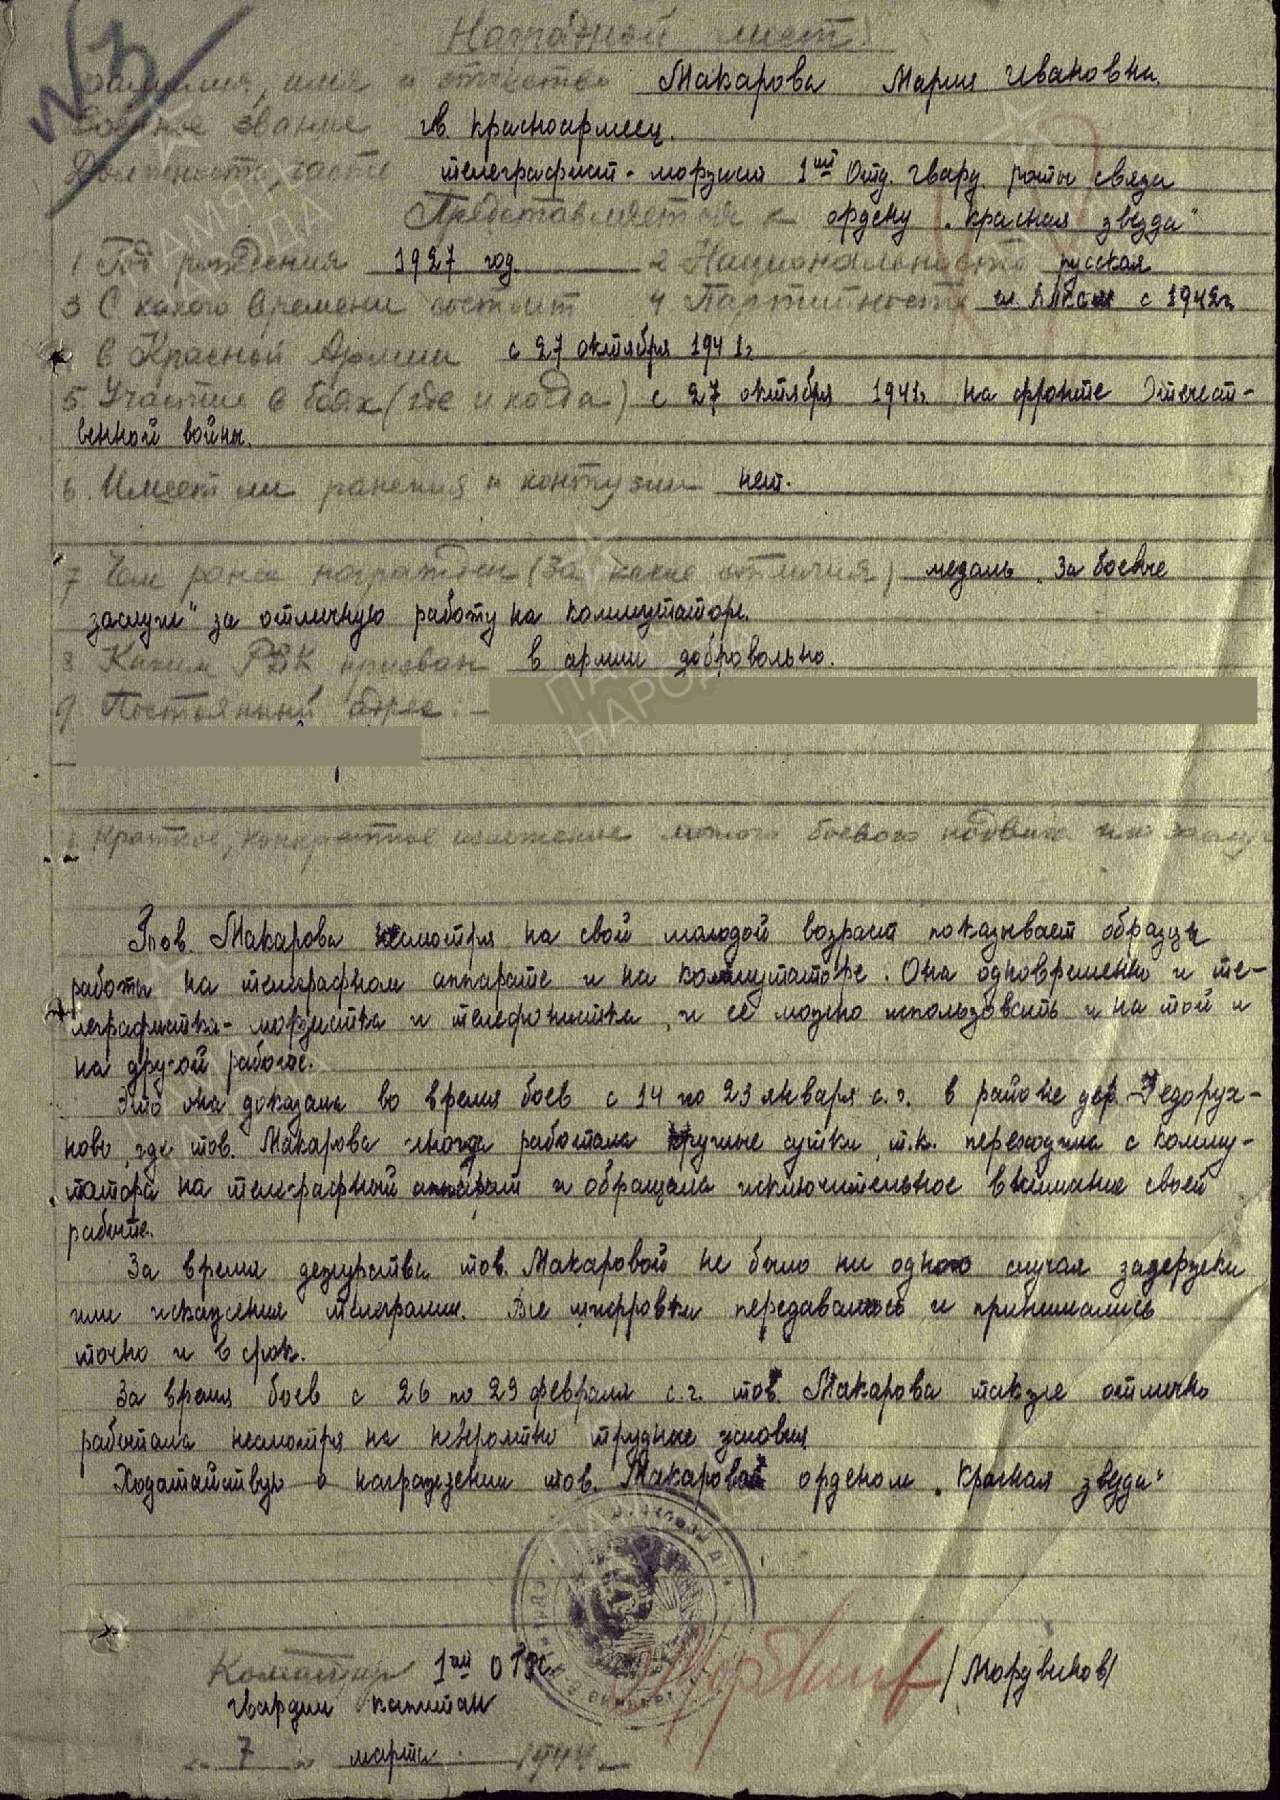 Наградной лист.
Фамилия, имя и отчество Макарова Мария Ивановна.
Военное звание гв. красноармеец.
Должность, часть телеграфист-морзист 1ой Отд. гвард. роты связи
Представляется к ордену "Красная звезда"
1 Год рождения 1927 год. 2 Национальность русская
3 С какого времени состоит 4 Партийность чл. ВЛКСМ с 1942г.
в Красной Армии с 27 октября 1941г.
5. Участие в боях (где и когда) с 27 октября 1941г. на фронте Отечест-
венной войны.
6. Имеет ли ранения и контузии нет.
7 Чем ранее награжден (за какие отличия) медаль "За боевые
заслуги" за отличную работу на коммутаторе.
8 Каким РВК призван в армии добровольно.
9 Постоянный адрес:
Краткое, конкретное изложение личного боевого подвига или заслуг
Тов. Макарова несмотря на свой молодой возраст показывает образцы
работы на телеграфном аппарате и на коммутаторе. Она одновременно и те-
леграфистка-морзистка и телефонистка, и её можно использовать и на той и
на другой работе.
Это она доказала во время боев с 14 по 23 января с.г. в районе дер. Федорух-
ново, где тов. Макарова иногда работала круглые сутки, т.к. переходила с комму-
татора на телеграфный аппарат и обращала исключительное внимание своей
работе.
За время дежурства тов. Макаровой не было ни одного случая задержки
или искажения телеграмм. Все шифровки передавались и принимались
точно и в срок.
За время боев с 26 по 29 февраля с.г. тов. Макарова также отлично
работала несмотря на невероятно трудные условия
Ходатайствую о награждении тов. Макаровой орденом "Красная звезда"
Командир 1ой ОГРС /Мордвинов/
гвардии капитан
"7" марта 1944
ПАМЯТЬ
НАРОДА